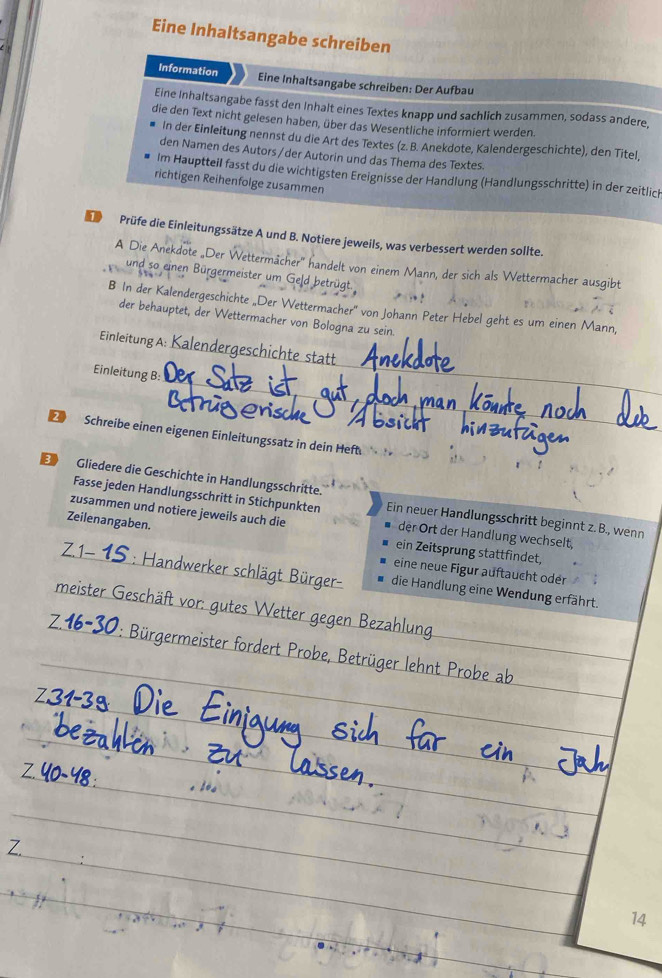 Eine Inhaltsangabe schreiben
Information
Eine Inhaltsangabe schreiben: Der Aufbau
Eine Inhaltsangabe fasst den Inhalt eines Textes knapp und sachlich zusammen, sodass andere,
die den Text nicht gelesen haben, über das Wesentliche informiert werden.
▪ In der Einleitung nennst du die Art des Textes (z. B. Anekdote, Kalendergeschichte), den Titel,
den Namen des Autors / der Autorin und das Thema des Textes.
▪ Im Hauptteil fasst du die wichtigsten Ereignisse der Handlung (Handlungsschritte) in der zeitlich
richtigen Reihenfolge zusammen
1 Prüfe die Einleitungssätze A und B. Notiere jeweils, was verbessert werden sollte.
A Die Anekdote „Der Wettermacher" handelt von einem Mann, der sich als Wettermacher ausgibt
und so einen Bürgermeister um Geld betrügt.
B In der Kalendergeschichte „Der Wettermacher" von Johann Peter Hebel geht es um einen Mann,
der behauptet, der Wettermacher von Bologna zu sein.
Einleitung A: Kalendergeschichte statt Anekdote
Einleitung B: Der Satz ist gut, doch man könnte noch die
Betrügerische Absicht hinzufügen
2 Schreibe einen eigenen Einleitungssatz in dein Heft.
3 Gliedere die Geschichte in Handlungsschritte.
Fasse jeden Handlungsschritt in Stichpunkten
zusammen und notiere jeweils auch die
Zeilenangaben.
Ein neuer Handlungsschritt beginnt z. B., wenn
▪ der Ort der Handlung wechselt,
▪ ein Zeitsprung stattfindet,
▪ eine neue Figur auftaucht oder
▪ die Handlung eine Wendung erfährt.
Z. 1– 15 : Handwerker schlägt Bürger-
meister Geschäft vor: gutes Wetter gegen Bezahlung
Z. 16-30 : Bürgermeister fordert Probe, Betrüger lehnt Probe ab
Z. 31-39: Die Einigung sich für ein Jahr
bezahlen zu lassen.
Z. 40-48 :
Z. :
14